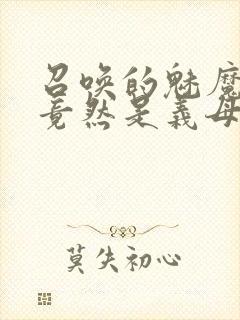 召唤的魅魔
竟然是义母
莫失初心